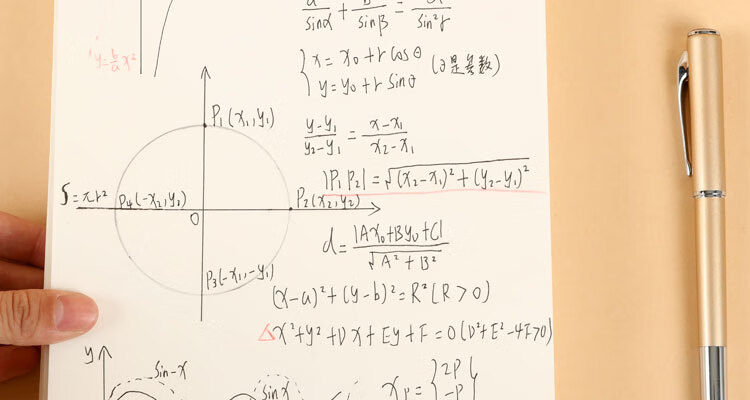 y=b/a x²
sinα + sinβ = sin²γ
x=x₀+rcosθ
y=y₀+rsinθ
(θ是参数)
P₁(x₁,y₁)
(y-y₁)/(y₂-y₁)=(x-x₁)/(x₂-x₁)
|P₁P₂|=√(x₂-x₁)²+(y₂-y₁)²
S=πr²
P₄(-x₂,y₂)
P₂(x₂,y₂)
O
d=|Ax₀+By₀+C|/√A²+B²
P₃(-x₁,-y₁)
(x-a)²+(y-b)²=R²(R>0)
△x²+y²+Dx+Ey+F=0(D²+E²-4F>0)
y
sin-x
sinx
xₚ={2P
-P